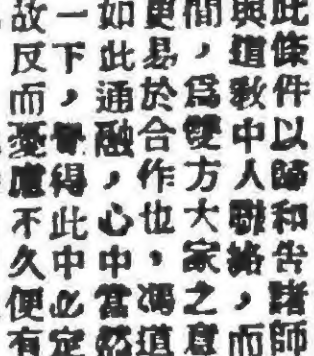 此條件以師和告諸師
與道敎中人聯絡，而
間，爲雙方大家之意
更易於合作也，馮道
如此通融，心中當然
一下，覺得此中必定
故反而憂慮不久便有